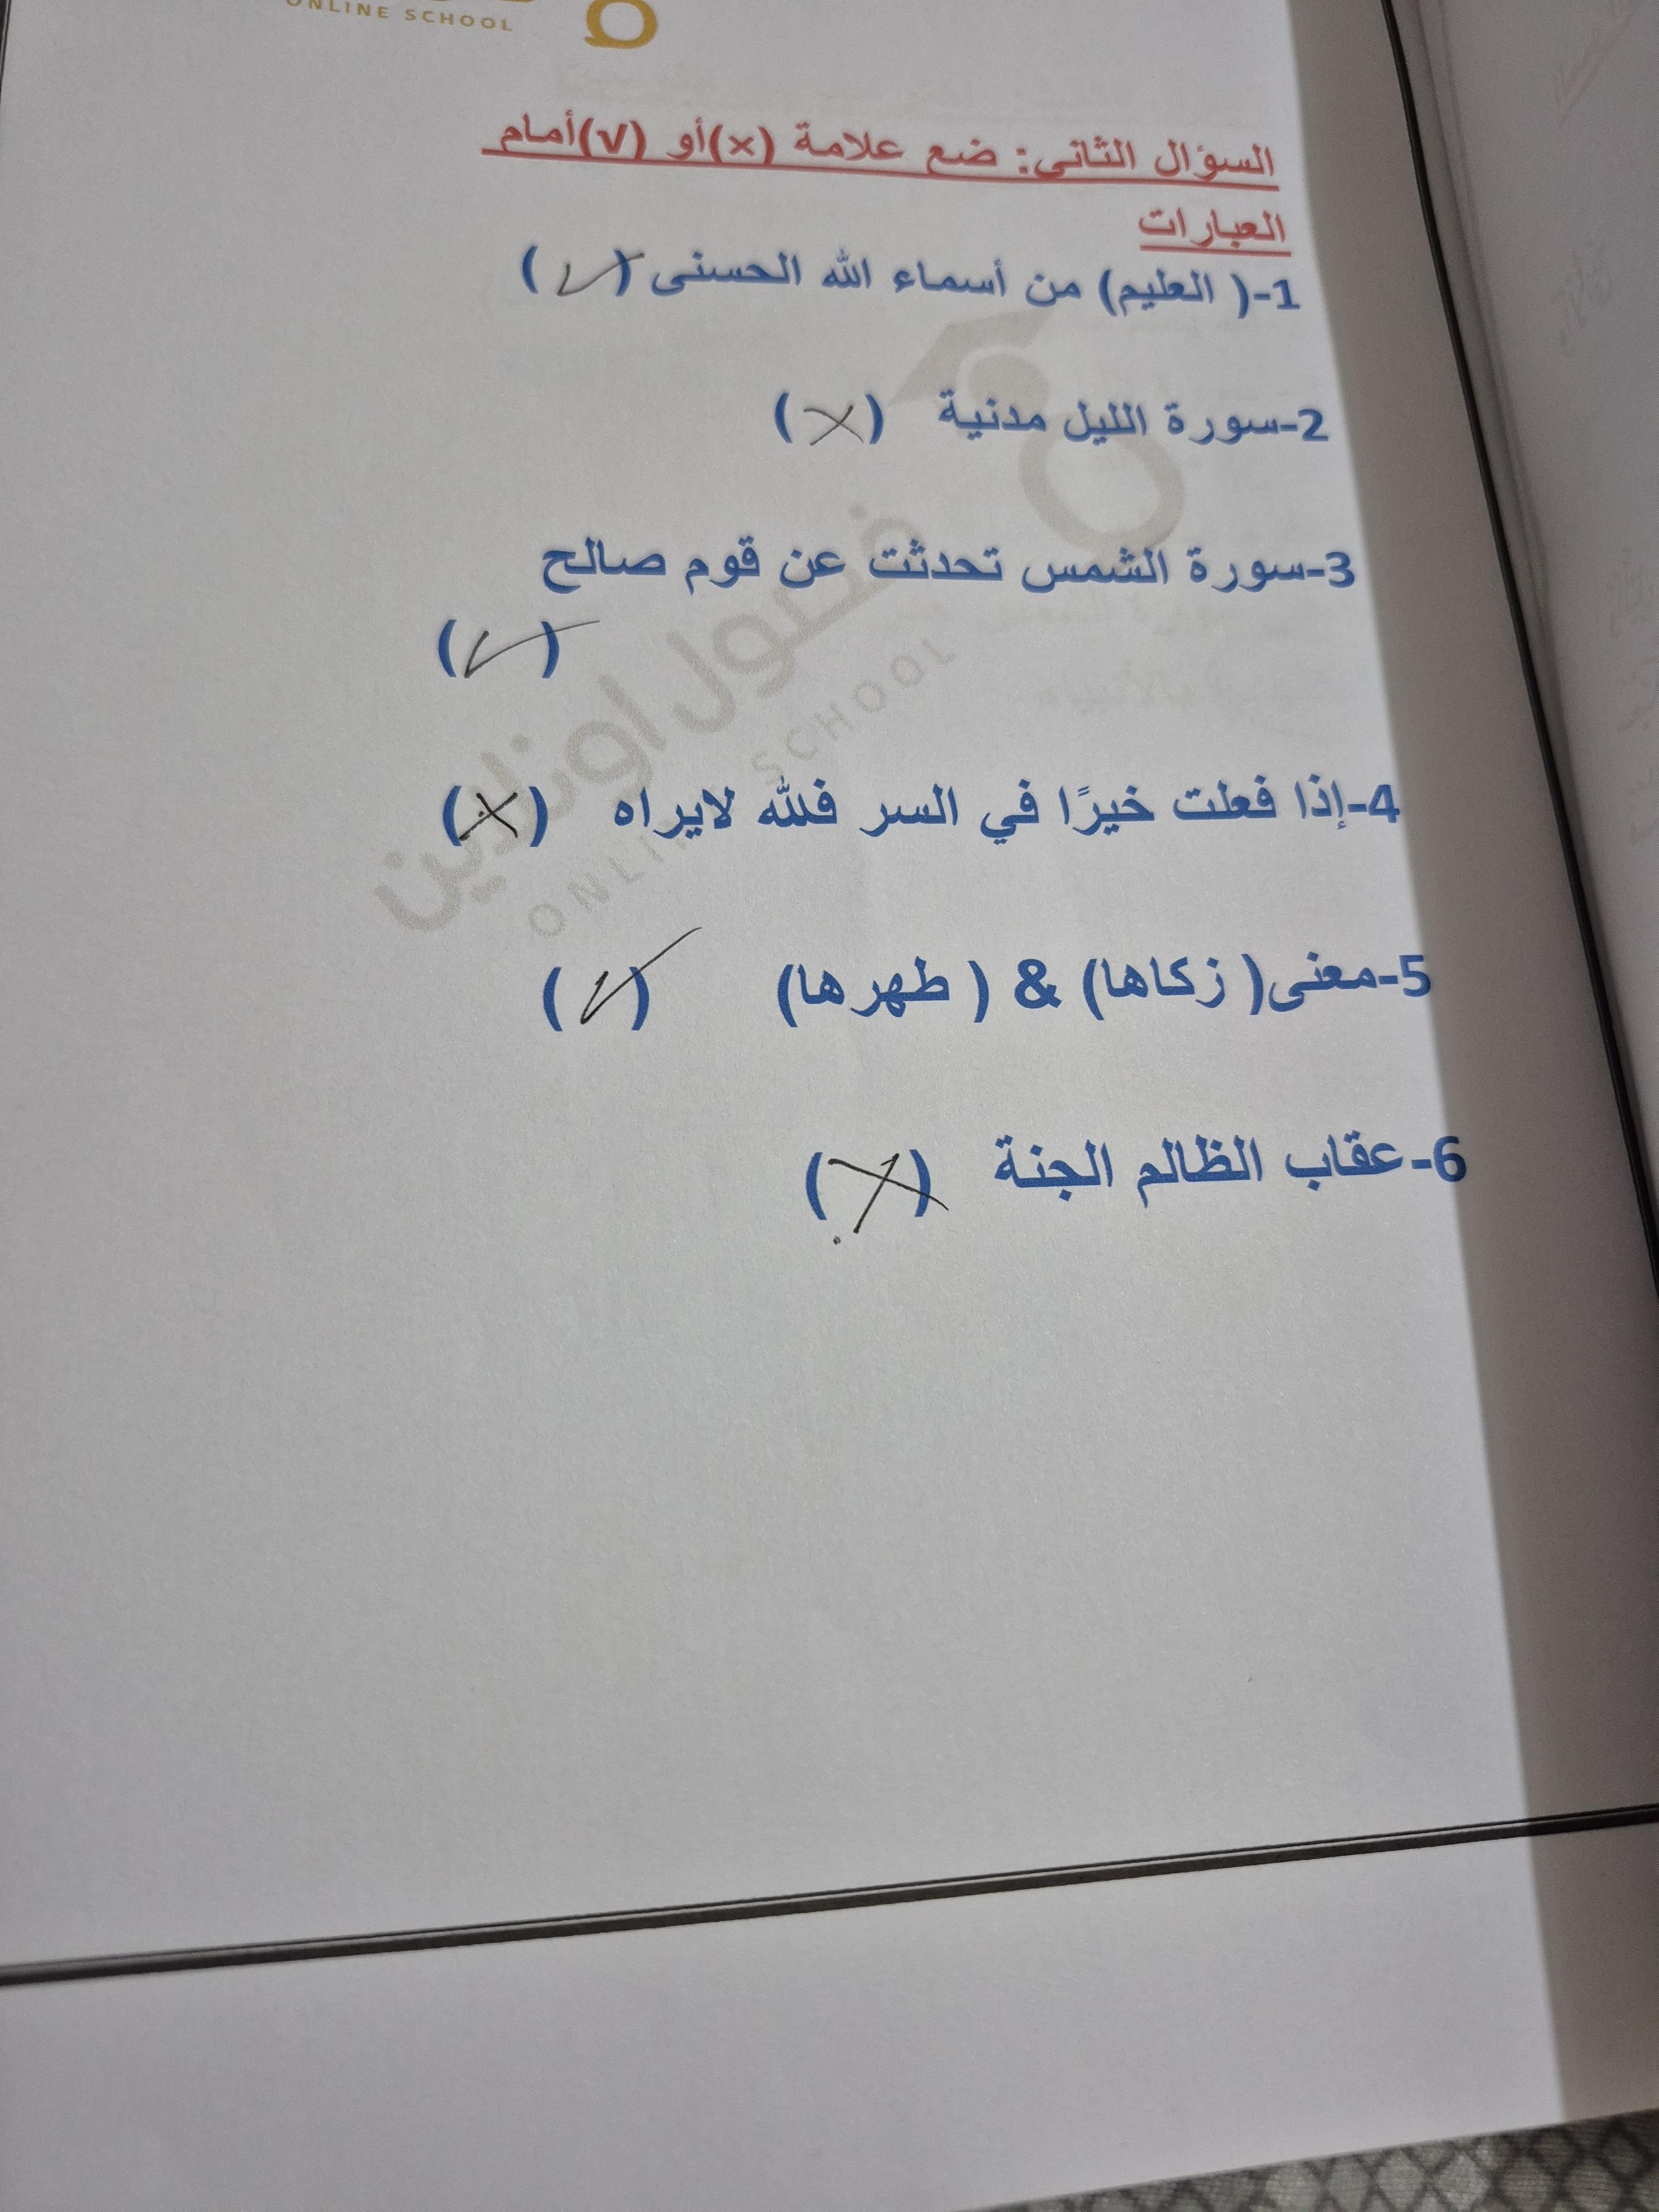 ONLINE SCHOOL
السؤال الثاني: ضع علامة (×)أو (√)أمام
العبارات
1-( العليم) من أسماء الله الحسنى (✓)
2-سورة الليل مدنية (×)
3-سورة الشمس تحدثت عن قوم صالح
(✓)
4-إذا فعلت خيرًا في السر فلله لايراه (×)
5-معنى( زكاها) & ( طهرها) (✓)
6-عقاب الظالم الجنة (×)
فصول اونلاين
ONLINE SCHOOL